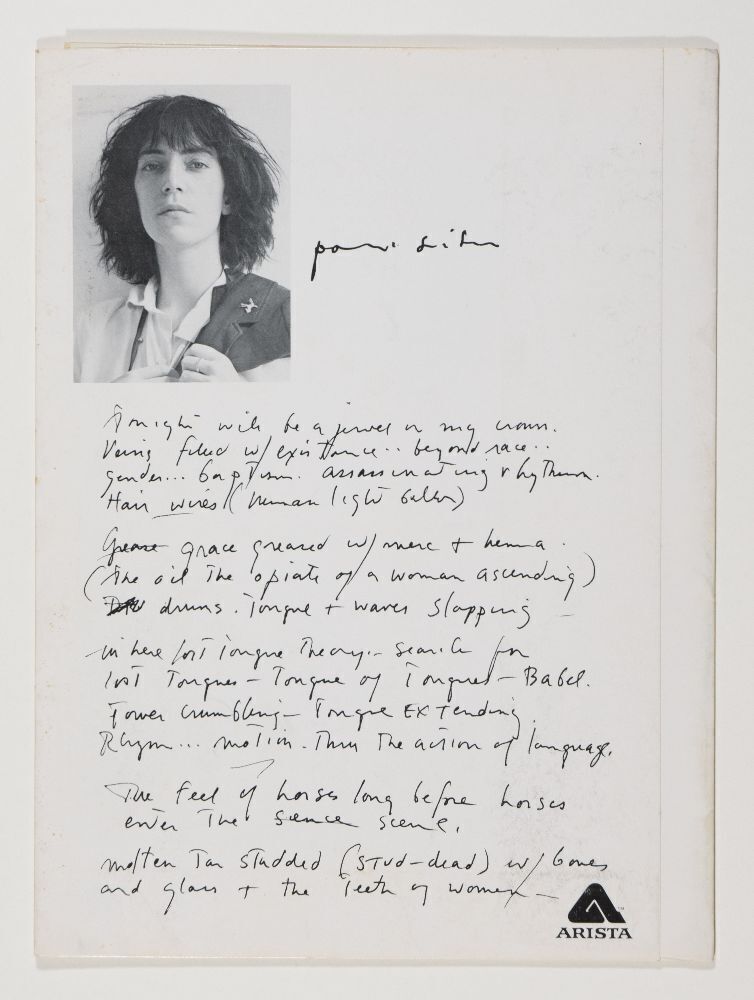 patti smith
Tonight will be a jewel in my crown.
Veins filled w/existance.. beyond race..
gender... baptism. assassinating rhythum.
Hair wires (human light bulbs)
Grease grace greased w/merc + henna.
(The oil the opiate of a woman ascending)
drums. Tongue + waves slapping —
in here lost Tongue Theory.. search for
lost Tongues — Tongue of Tongues — Babel.
Tower crumbling — Tongue EXTending.
Rhym... motion. Thru The action of language.
The feel of horses long before horses
enter The scene.
molten Tar studded (STud-dead) w/ bones
and glass + the Teeth of women —
ARISTA